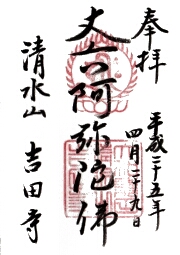 奉拝
平成二十五年
四月二十九日
丈六阿弥陀佛
清水山 吉田寺